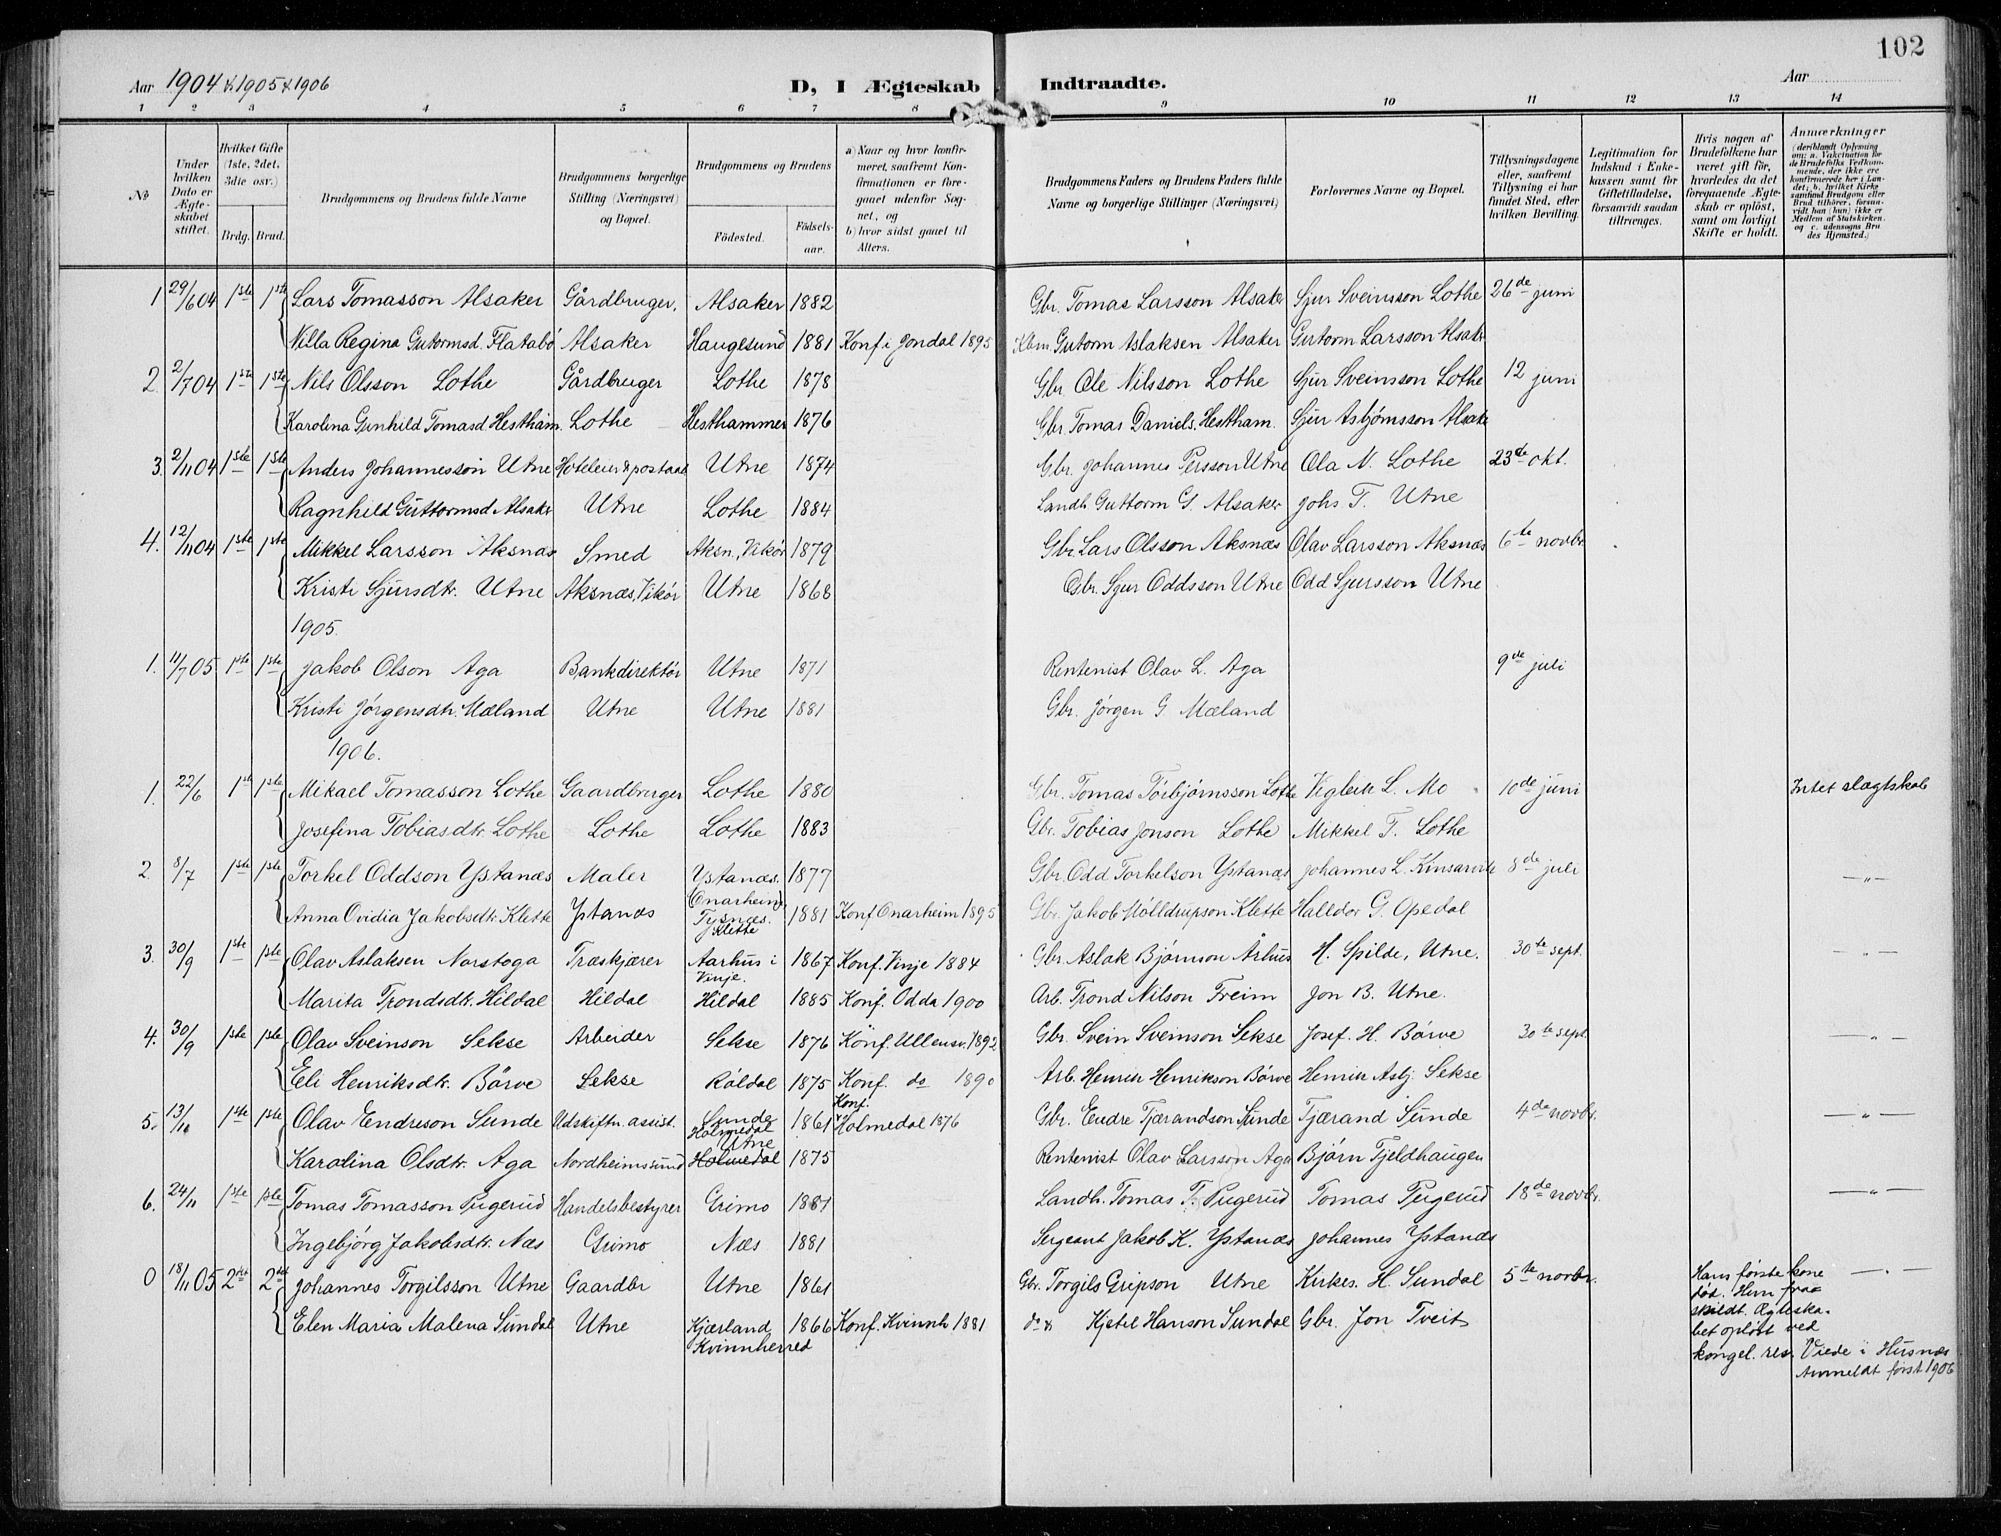 102
Aar 1904 & 1905 & 1906
D, I Ægteskab Indtraadte.
Aar
1 2 3 4 5 6 7 8 9 10 11 12 13 14
No
Under hvilken Dato er Ægteskabet stiftet.
Hvilket Gifte (1ste, 2det, 3die osv.)
Brdg. Brud.
Brudgommens og Brudens fulde Navne
Brudgommens borgerlige Stilling (Næringsvei) og Bopæl.
Brudgommens og Brudens
Födested. Födselsaar.
a) Naar og hvor konfirmeret, saafremt Konfirmationen er foregaaet udenfor Sognet, og
b) hvor sidst gaaet til Alters.
Brudgommens Faders og Brudens Faders fulde Navne og borgerlige Stillinger (Næringsvei)
Forlovernes Navne og Bopæl.
Tillysningsdagene eller, saafremt Tillysning ei har fundet Sted, efter hvilken Bevilling.
Legitimation for Indskud i Enkekassen samt for Giftetilladelse, forsaavidt saadan tiltrænges.
Hvis nogen af Brudefolkene har været gift för, hvorledes da det foregaaende Ægteskab er oplöst, samt om lovligt Skifte er holdt.
Anmærkninger (deriblandt Oplysning om: a. Vakcination for de Brudefolks Vedkommende, der ikke ere konfirmerede her i Landet; b. hvilket Kirkesamfund Brudgom eller Brud tilhörer, forsaavidt han (hun) ikke er Medlem af Statskirken. og c. udensogns Brudes Hjemsted.)
1 29/6 04 1ste 1ste Lars Tomasson Alsaker Gårdbruger, Alsaker 1882 Gbr. Tomas Larsson Alsaker Sjur Sveinsson Lothe 26de juni
Villa Regina Guttormsd. Flatabö Alsaker Haugesund 1881 Konf i Jondal 1895 Guttorm Aslaksen Alsaker Guttorm Larsson Alsaker
2. 2/7 04 1ste 1ste Nils Olsson Lothe Gårdbruger Lothe 1878 Gbr. Ole Nilsson Lothe Sjur Sveinsson Lothe 12 juni
Karolina Gunhild Tomasd Hestham. Lothe Hesthammer 1876 Gbr Tomas Daniels. Hestham. Sjur Asbjørnsson Alsaker
3. 2/11 04 1ste 1ste Anders Johannesson Utne Hoteleier & postaab Utne 1874 Gbr. Johannes Persson Utne Ola N. Lothe 23de okt.
Ragnhild Guttormsd Alsaker Utne Lothe 1884 Landh Guttorm G. Alsaker Johs T. Utne
4. 12/11 04 1ste 1ste Mikkel Larsson Aksnæs Smed Aksn, Vikör 1879 Gbr. Lars Olsson Aksnæs Olav Larsson Aksnæs 6te novbr
Kristi Sjursdtr. Utne Aksnæs, Vikör Utne 1868 Gbr. Sjur Oddsson Utne Odd Sjursson Utne
1905.
1. 11/7 05 1ste 1ste Jakob Olson Aga Bankdirektör Utne 1871 Rentenist Olav L. Aga 9de juli
Kristi Jørgensdtr. Mæland Utne Utne 1881 Gbr. Jörgen G Mæland
1906.
1. 22/6 1ste 1ste Mikael Tomasson Lothe Gaardbruger Lothe 1880 Gbr. Tomas Torbjørnsson Lothe Vigleik L. Mo 10de juni Intet slægtskab
Josefina Tobiasdtr Lothe Lothe Lothe 1883 Gbr. Tobias Jonson Lothe Mikkel T. Lothe
2. 8/7 1ste 1ste Torkel Oddson Ystanæs Maler Ystanæs. 1877 Gbr. Odd Torkelson Ystanæs Johannes L. Kinsarvik 8de juli —"—
Anna Ovidia Jakobsdtr. Klette Ystanæs Onarheim, Tysnæs. Klette 1881 Konf Onarheim 1895 Gbr. Jakob Mölldrupson Klette Halldor G. Opedal
3. 30/9 1ste 1ste Olav Aslaksen Norstoga Træskjærer Aarhus i Vinje. 1867 Konf. Vinje 1884 Gbr. Aslak Bjørnson Århus H. Spilde, Utne. 30te sept. —"—
Marita Trondsdtr. Hildal Hildal Hildal 1885 Konf. Odda 1900 Arb. Trond Nilson Freim Jon B. Utne.
4. 30/9 1ste 1ste Olav Sveinson Sekse Arbeider Sekse 1876 Konf. Ullensv. 1892 Gbr. Svein Sveinson Sekse Josef. H. Börve 30te sept. —"—
Eli Henriksdtr. Börve Sekse Röldal 1875 Konf. do 1890 Arb. Henrik Henrikson Börve Henrik Asbj. Sekse
5. 13/11 1ste 1ste Olav Endreson Sunde Udskiftn. assist. Sunde Holmedal 1861 Konf. Holmedal 1876 Gbr. Endre Tjærandson Sunde Tjærand Sunde 4de novbr. —"—
Karolina Olsdtr. Aga Nordheimsund Utne Holmedal 1875 Rentenist Olav Larsson Aga Bjørn Fjeldhaugen
6. 24/11 1ste 1ste Tomas Tomasson Pugerud Handelsbestyrer Grimo 1881 Landh. Tomas T. Pugerud Tomas Pugerud 18de novbr. —"—
Ingebjörg Jakobsdtr. Næs Grimo Næs 1881 Sergeant Jakob K. Ystanæs Johannes Ystanæs
0 18/11 05 2det 2det Johannes Torgilsson Utne Gaardbr Utne 1861 Gbr. Torgils Gripson Utne Kirkes. H. Sundal 5te novbr. Hans første kone død. Hun fraskildt. Ægteskabet opløst ved kongel. res. —"—
Elen Maria Malena Sundal Utne Kjærland Kvinnherred 1866 Konf. Kvinnh 1881 do Kjetil Hanson Sundal Gbr. Jon Tveit
Viede i Husnæs Anmeldt først 1906